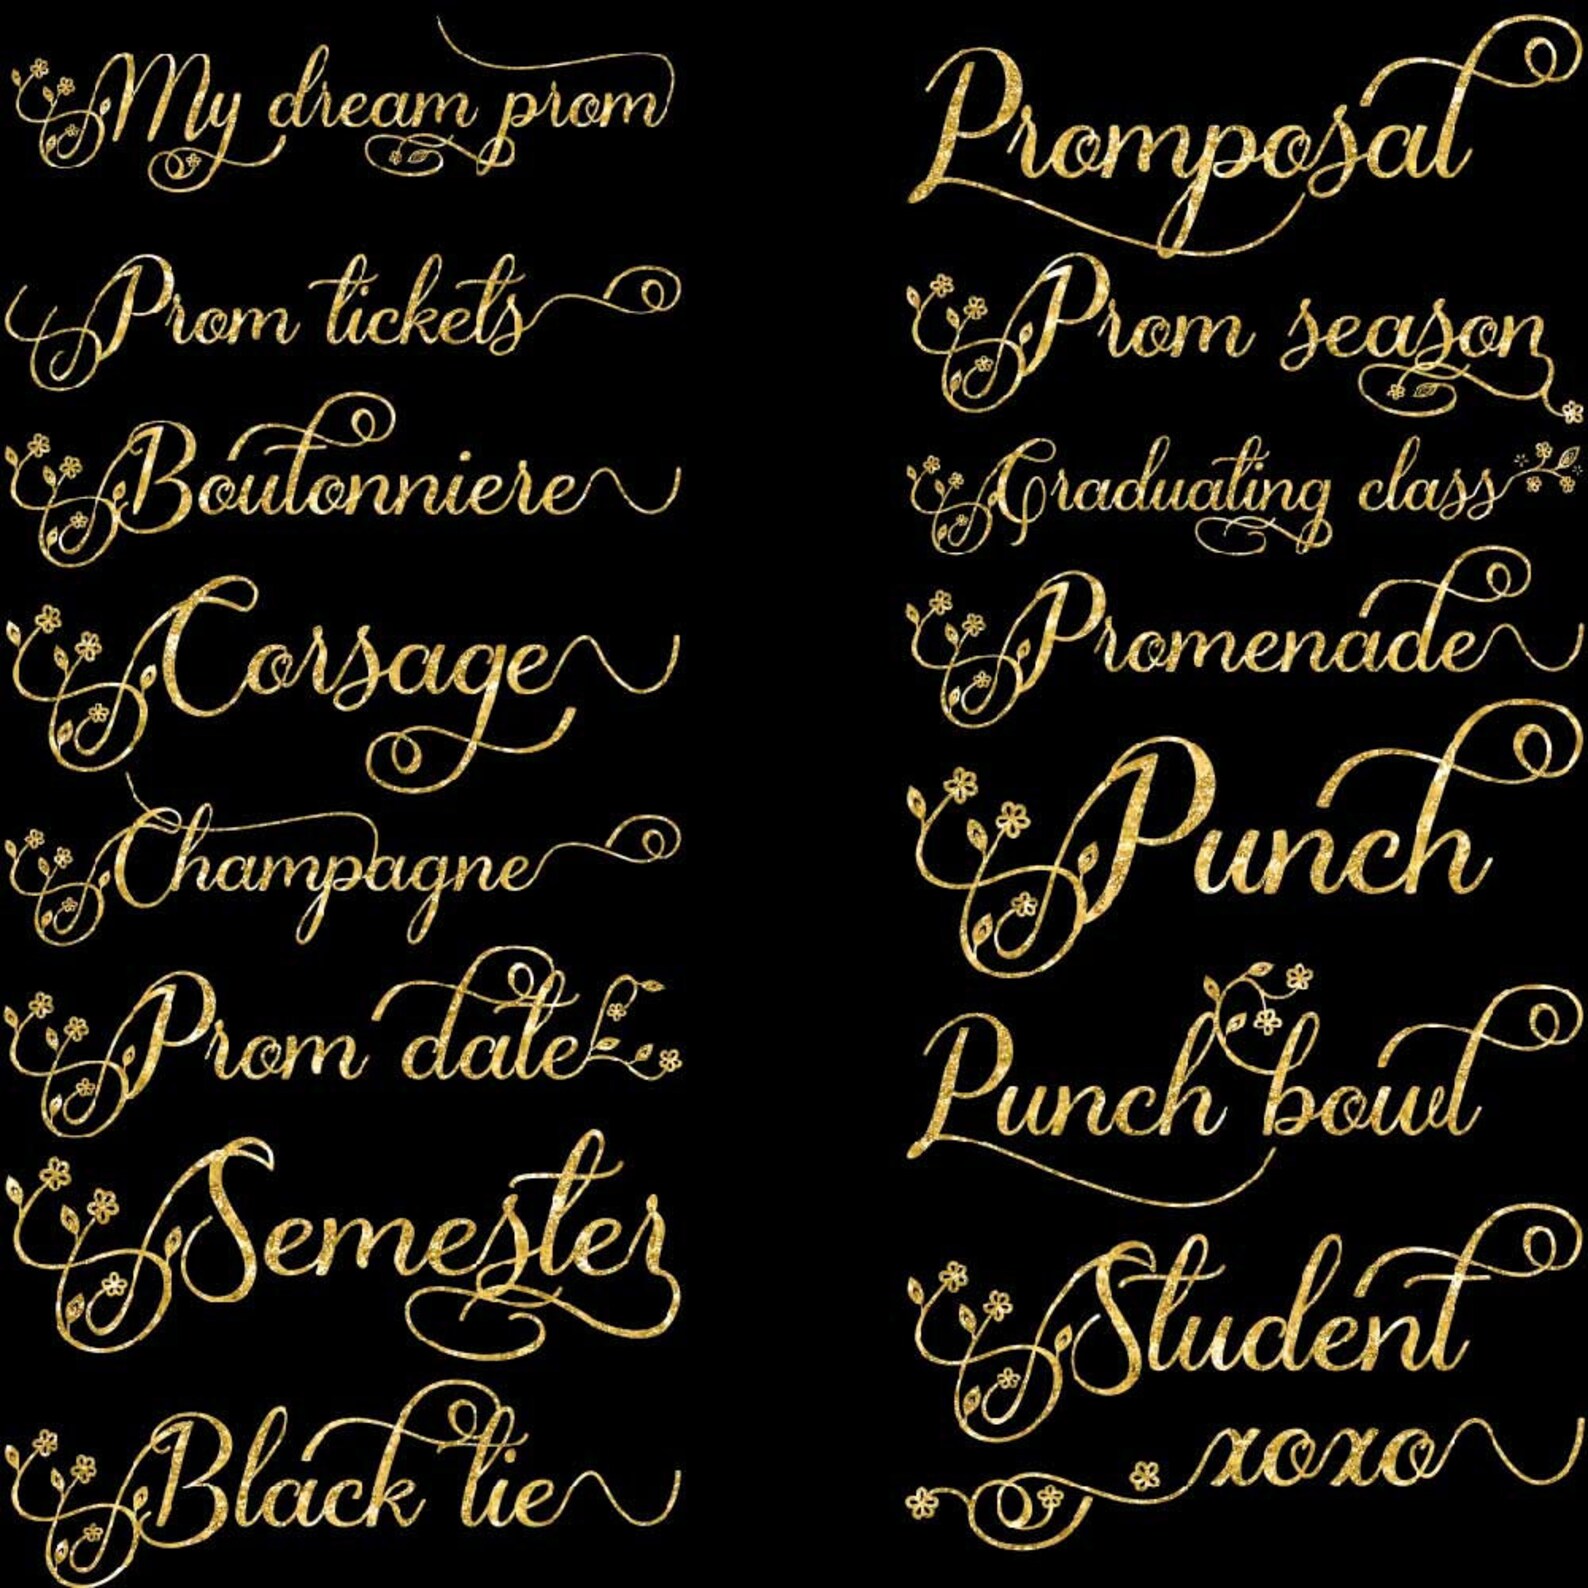 My dream prom
Prom tickets
Boutonniere
Corsage
Champagne
Prom date
Semester
Black tie
Promposal
Prom season
Graduating class
Promenade
Punch
Punch bowl
Student
xoxo